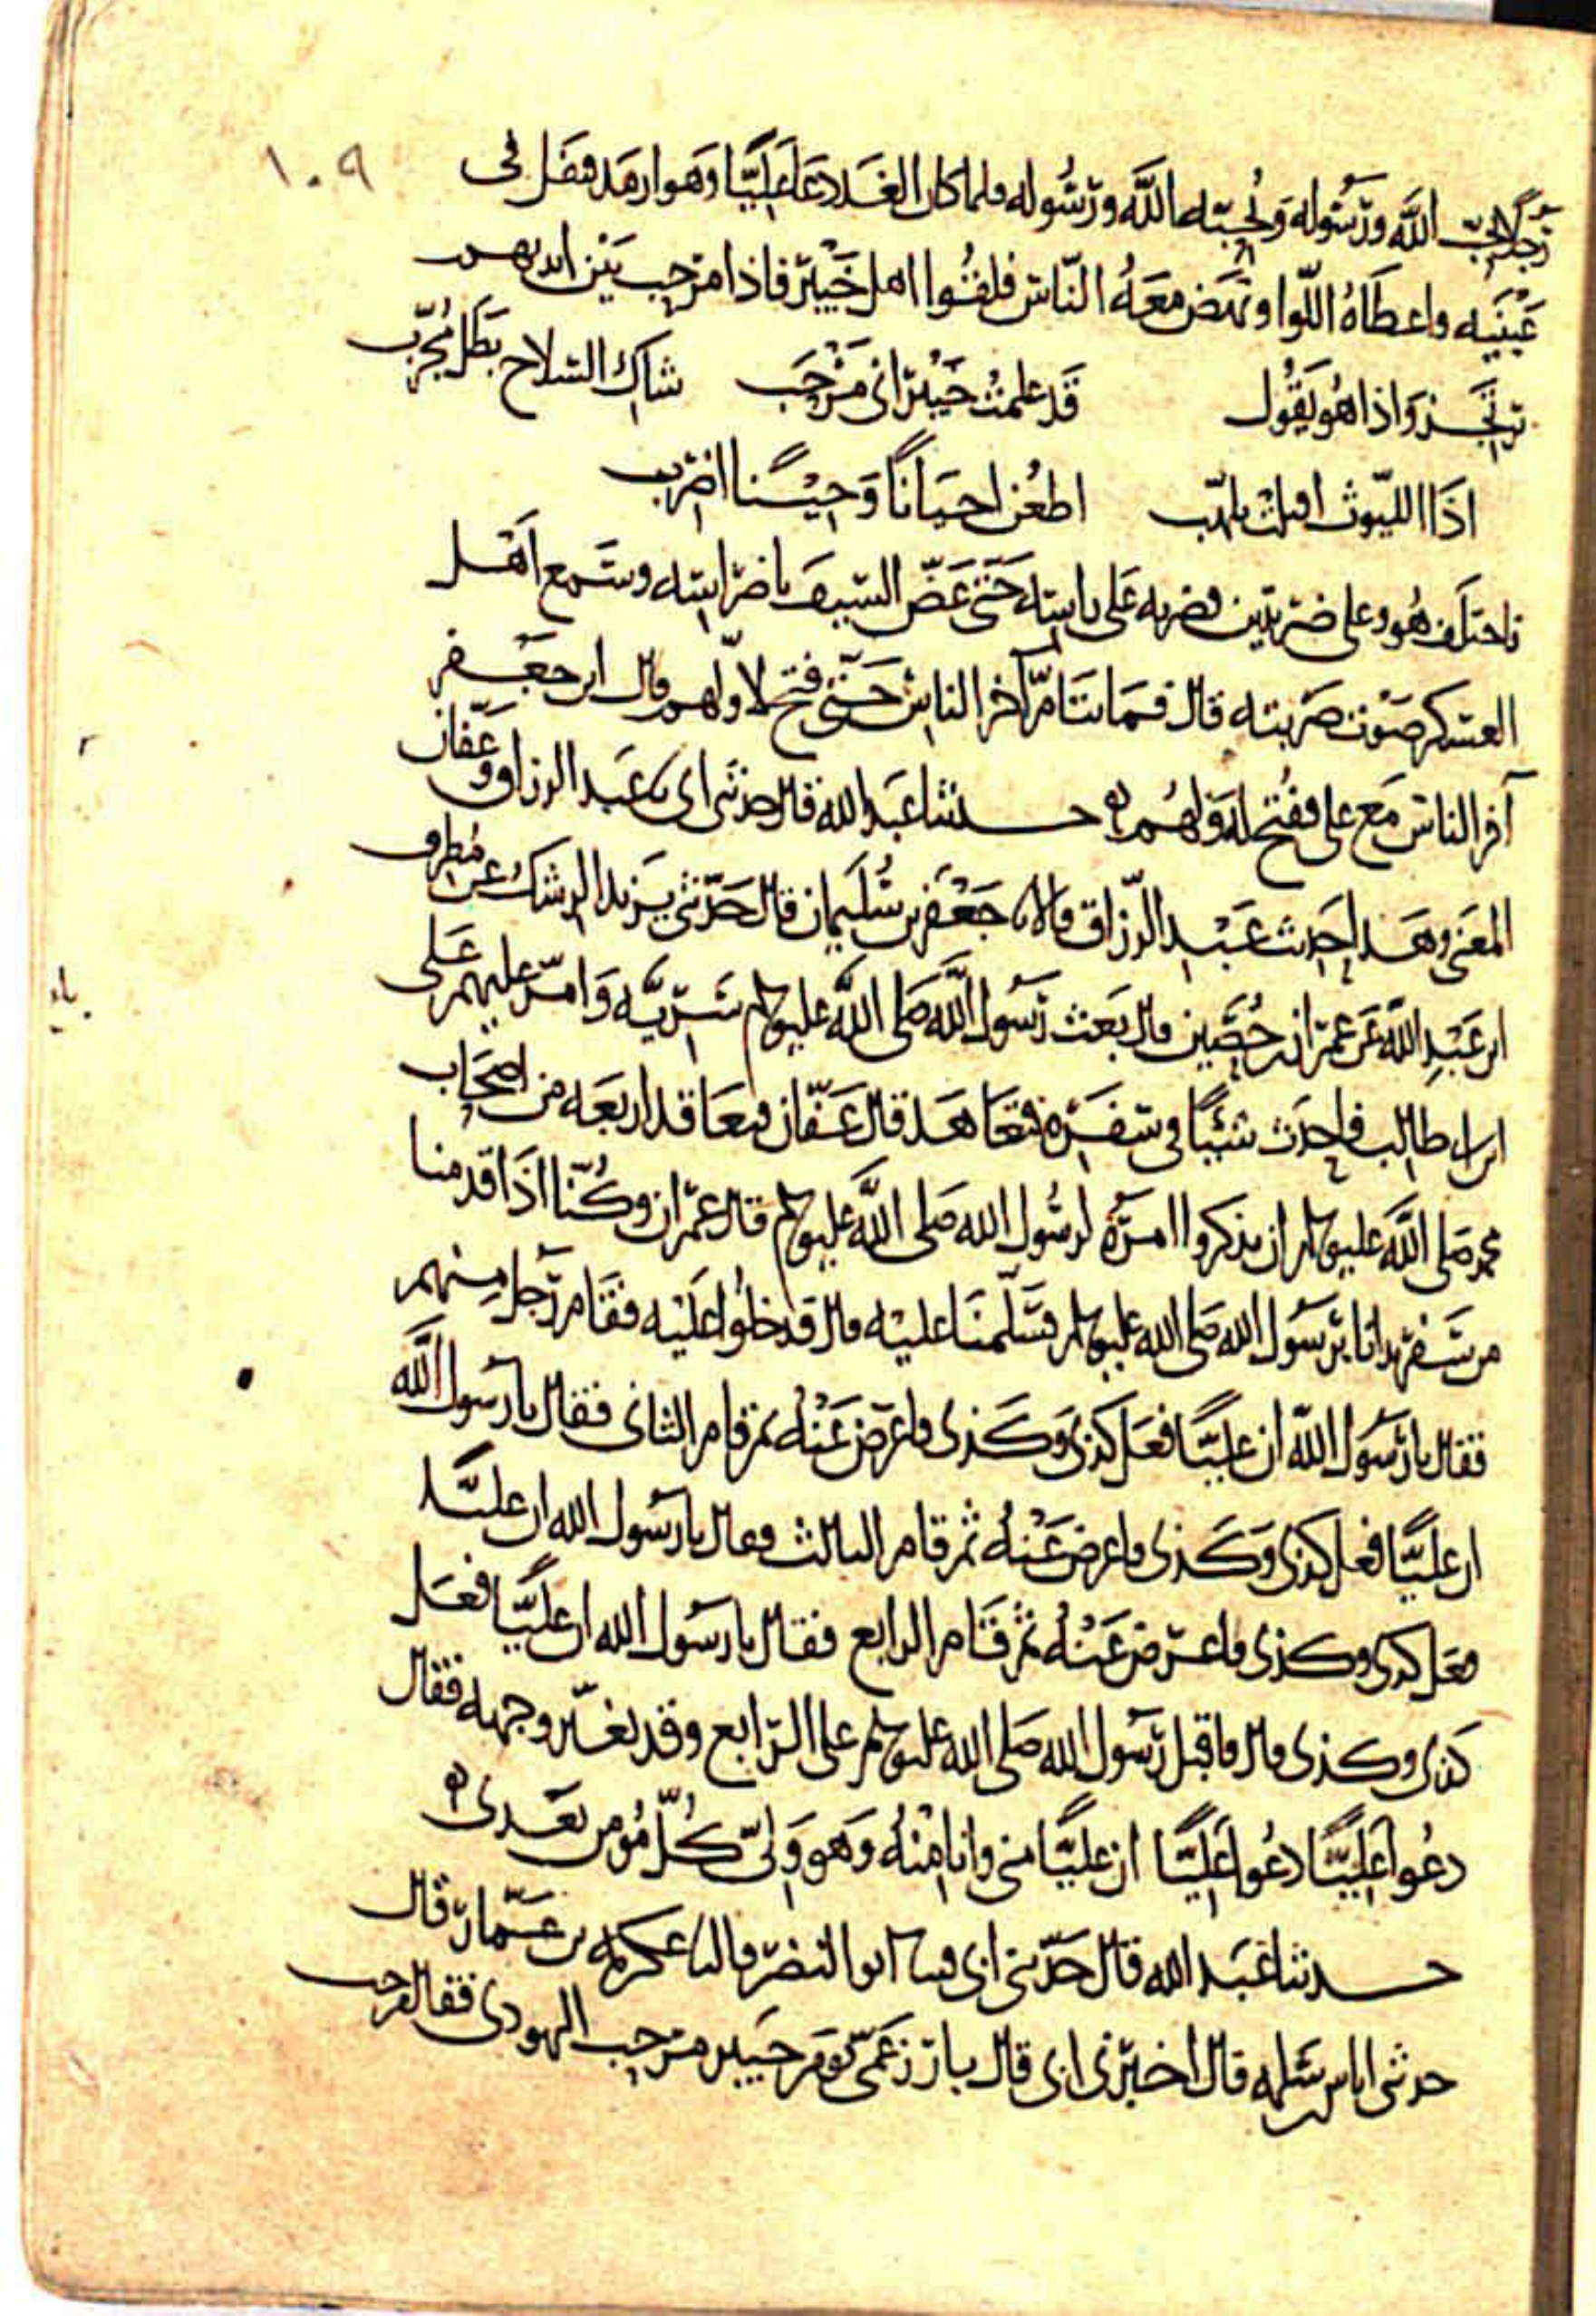 ١٠٩
رجلا يحب الله ورسوله ويحبه الله ورسوله فلما كان الغد دعا عليا وهو ارمد فتفل فى
عينيه واعطاه اللوا ونهض معه الناس فلقوا اهل خيبر فاذا مرحب بين ايديهم
يرتجز واذا هو يقول قد علمت خيبر انى مرحب شاك السلاح بطل مجرب
اذا الليوث اقبلت تلهب اطعن احيانا وحينا اضرب
فاختلف هو وعلى ضربتين فضربه على راسه حتى عض السيف باضراسه وسمع اهل
العسكر صوت ضربته قال فما تتام آخر الناس حتى فتح لاولهم وقال ابن جعفر
آخر الناس مع على ففتح له ولهم ه حدثنا عبد الله قال حدثنى ابى نا عبد الرزاق وعفان
المعنى وهذا حديث عبد الرزاق قالا نا جعفر بن سليمان قال حدثنى يزيد الرشك عن مطرف
ابن عبد الله عن عمران بن حصين قال بعث رسول الله صلى الله عليه وسلم سرية وامر عليهم على
ابن ابى طالب فاحدث شيئا فى سفره فتعاهد قال عفان فتعاقد اربعه من اصحاب
محمد صلى الله عليه وسلم ان يذكروا امره لرسول الله صلى الله عليه وسلم قال عمران وكنا اذا قدمنا
من سفر بدانا برسول الله صلى الله عليه وسلم فسلمنا عليه قال فدخلوا عليه فقام رجل منهم
فقال يا رسول الله ان عليا فعل كذى وكذى فاعرض عنه ثم قام الثانى فقال يا رسول الله
ان عليا فعل كذى وكذى فاعرض عنه ثم قام الثالث فقال يا رسول الله ان عليا
فعل كذى وكذى فاعرض عنه ثم قام الرابع فقال يا رسول الله ان عليا فعل
كذى وكذى قال فاقبل رسول الله صلى الله عليه وسلم على الرابع وقد تغير وجهه فقال
دعوا عليا دعوا عليا ان عليا منى وانا منه وهو ولى كل مومن بعدى ه
حدثنا عبد الله قال حدثنى ابى قثنا ابو النضر قال نا عكرمه بن عمار قال
حدثنى اياس بن سلمه قال اخبرنى ابى قال بارز عمى يوم خيبر مرحب اليهودى فقال مرحب